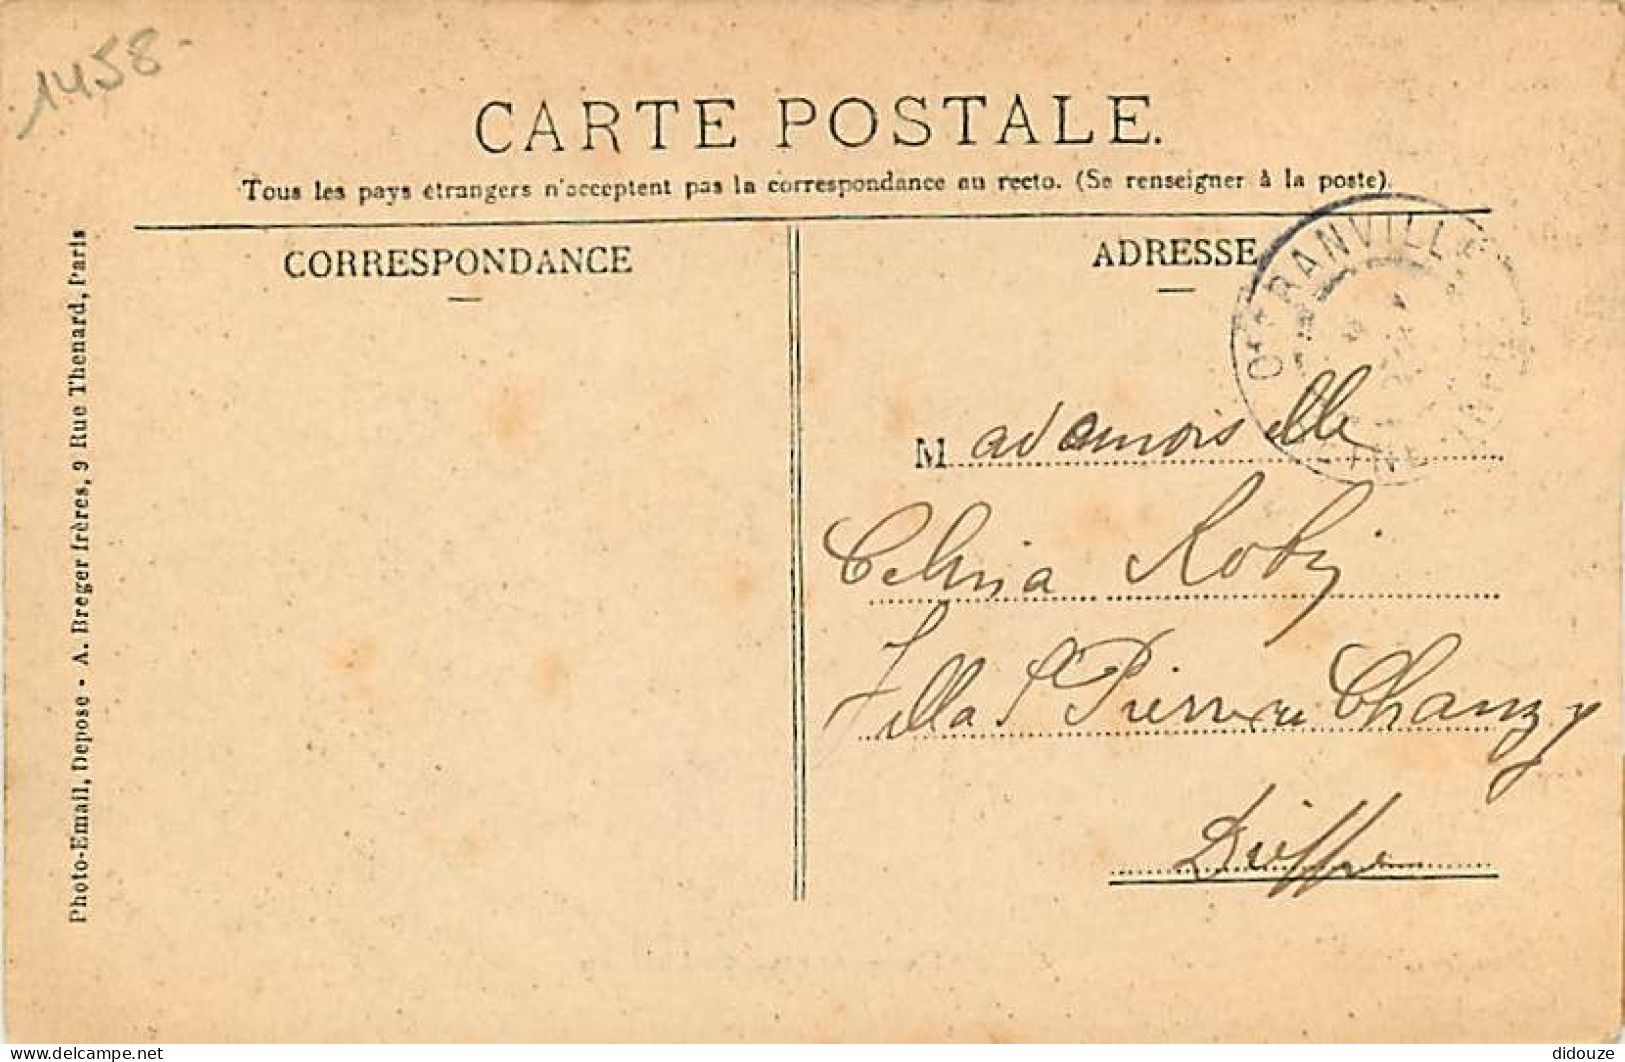 1458
CARTE POSTALE.
Tous les pays étrangers n'acceptent pas la correspondance au recto. (Se renseigner à la poste).
CORRESPONDANCE
ADRESSE
OFFRANVILLE
Mademoiselle
Celina Robin
Villa St Pierre rue Chanzy
Dieppe
Photo-Email, Depose • A. Breger frères, 9 Rue Thenard, Paris
didouze
delcampe.net